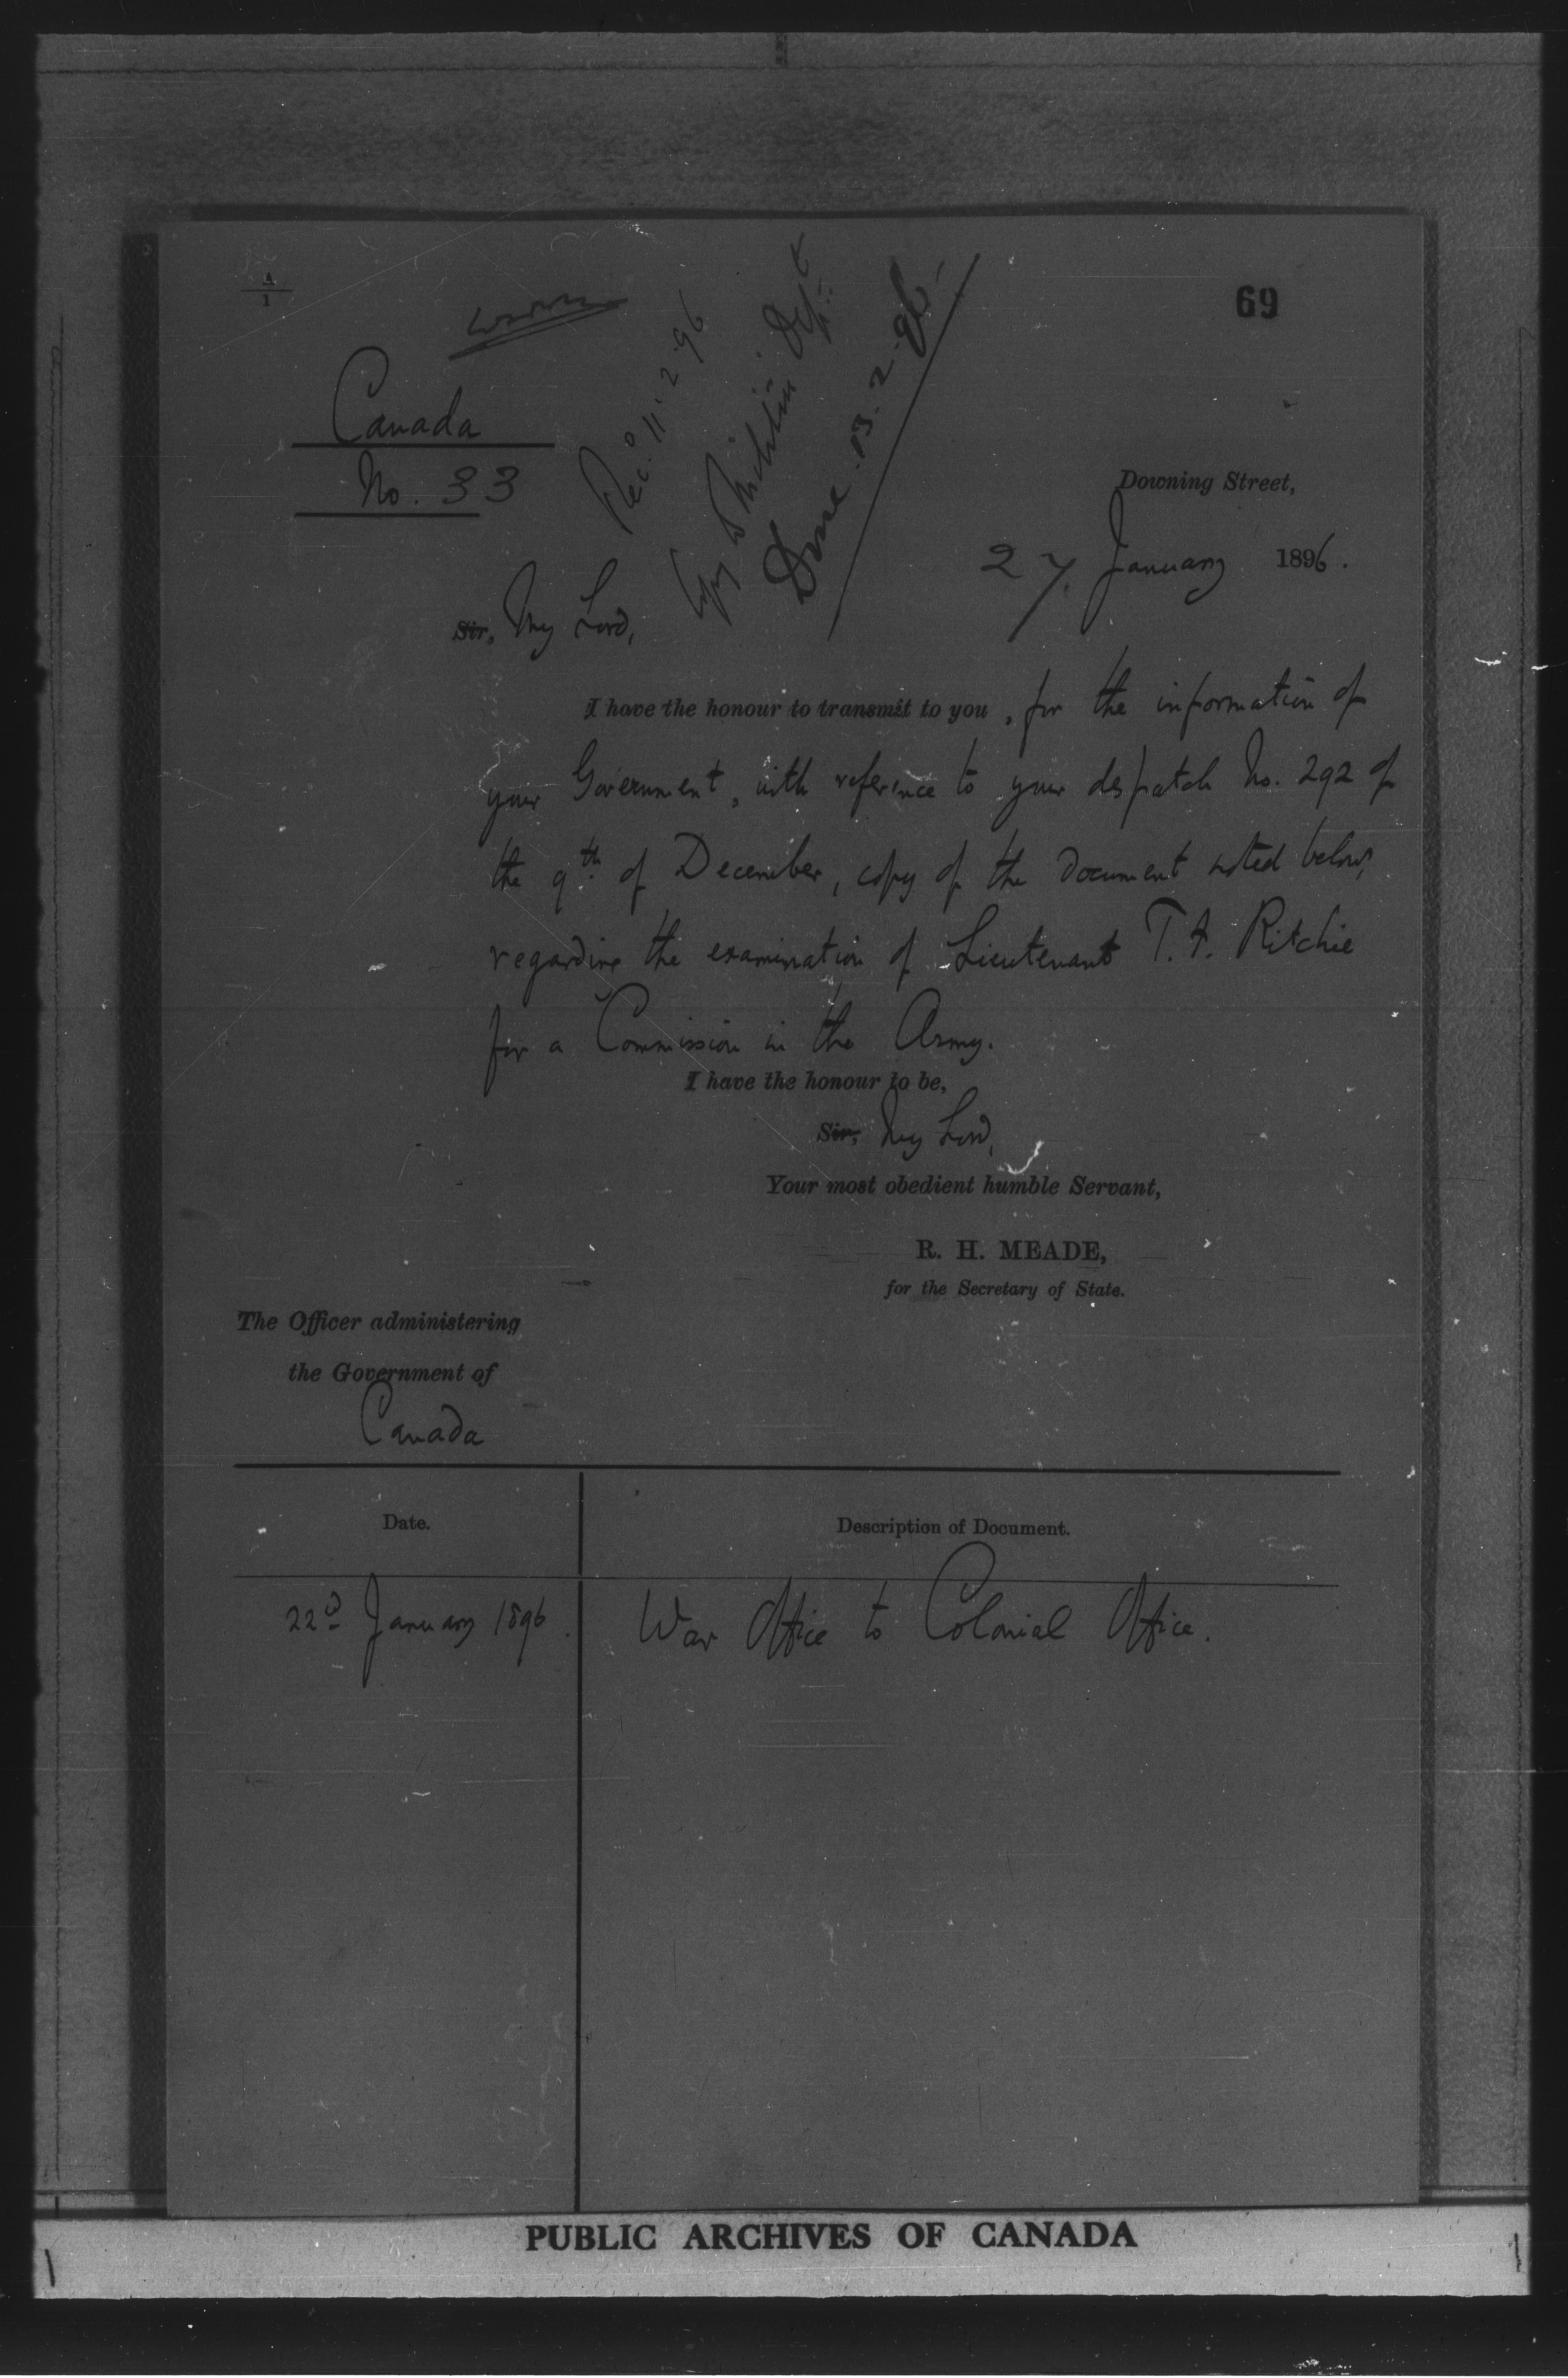 A
1
69
Canada
No. 33
Rec.d 11.2.96
Copy to Militia Dept
Done. 13.2.96.
Downing Street,
27. January 1896.
Sir, My Lord,
I have the honour to transmit to you, for the information of
your Government, with reference to your despatch No. 292 of
the 9th of December, copy of the document noted below,
regarding the examination of Lieutenant T. A. Ritchie
for a Commission in the Army.
I have the honour to be,
Sir, My Lord,
Your most obedient humble Servant,
R. H. MEADE,
for the Secretary of State.
The Officer administering
the Government of
Canada
Date.
Description of Document.
22d January 1896.
War Office to Colonial Office.
PUBLIC ARCHIVES OF CANADA